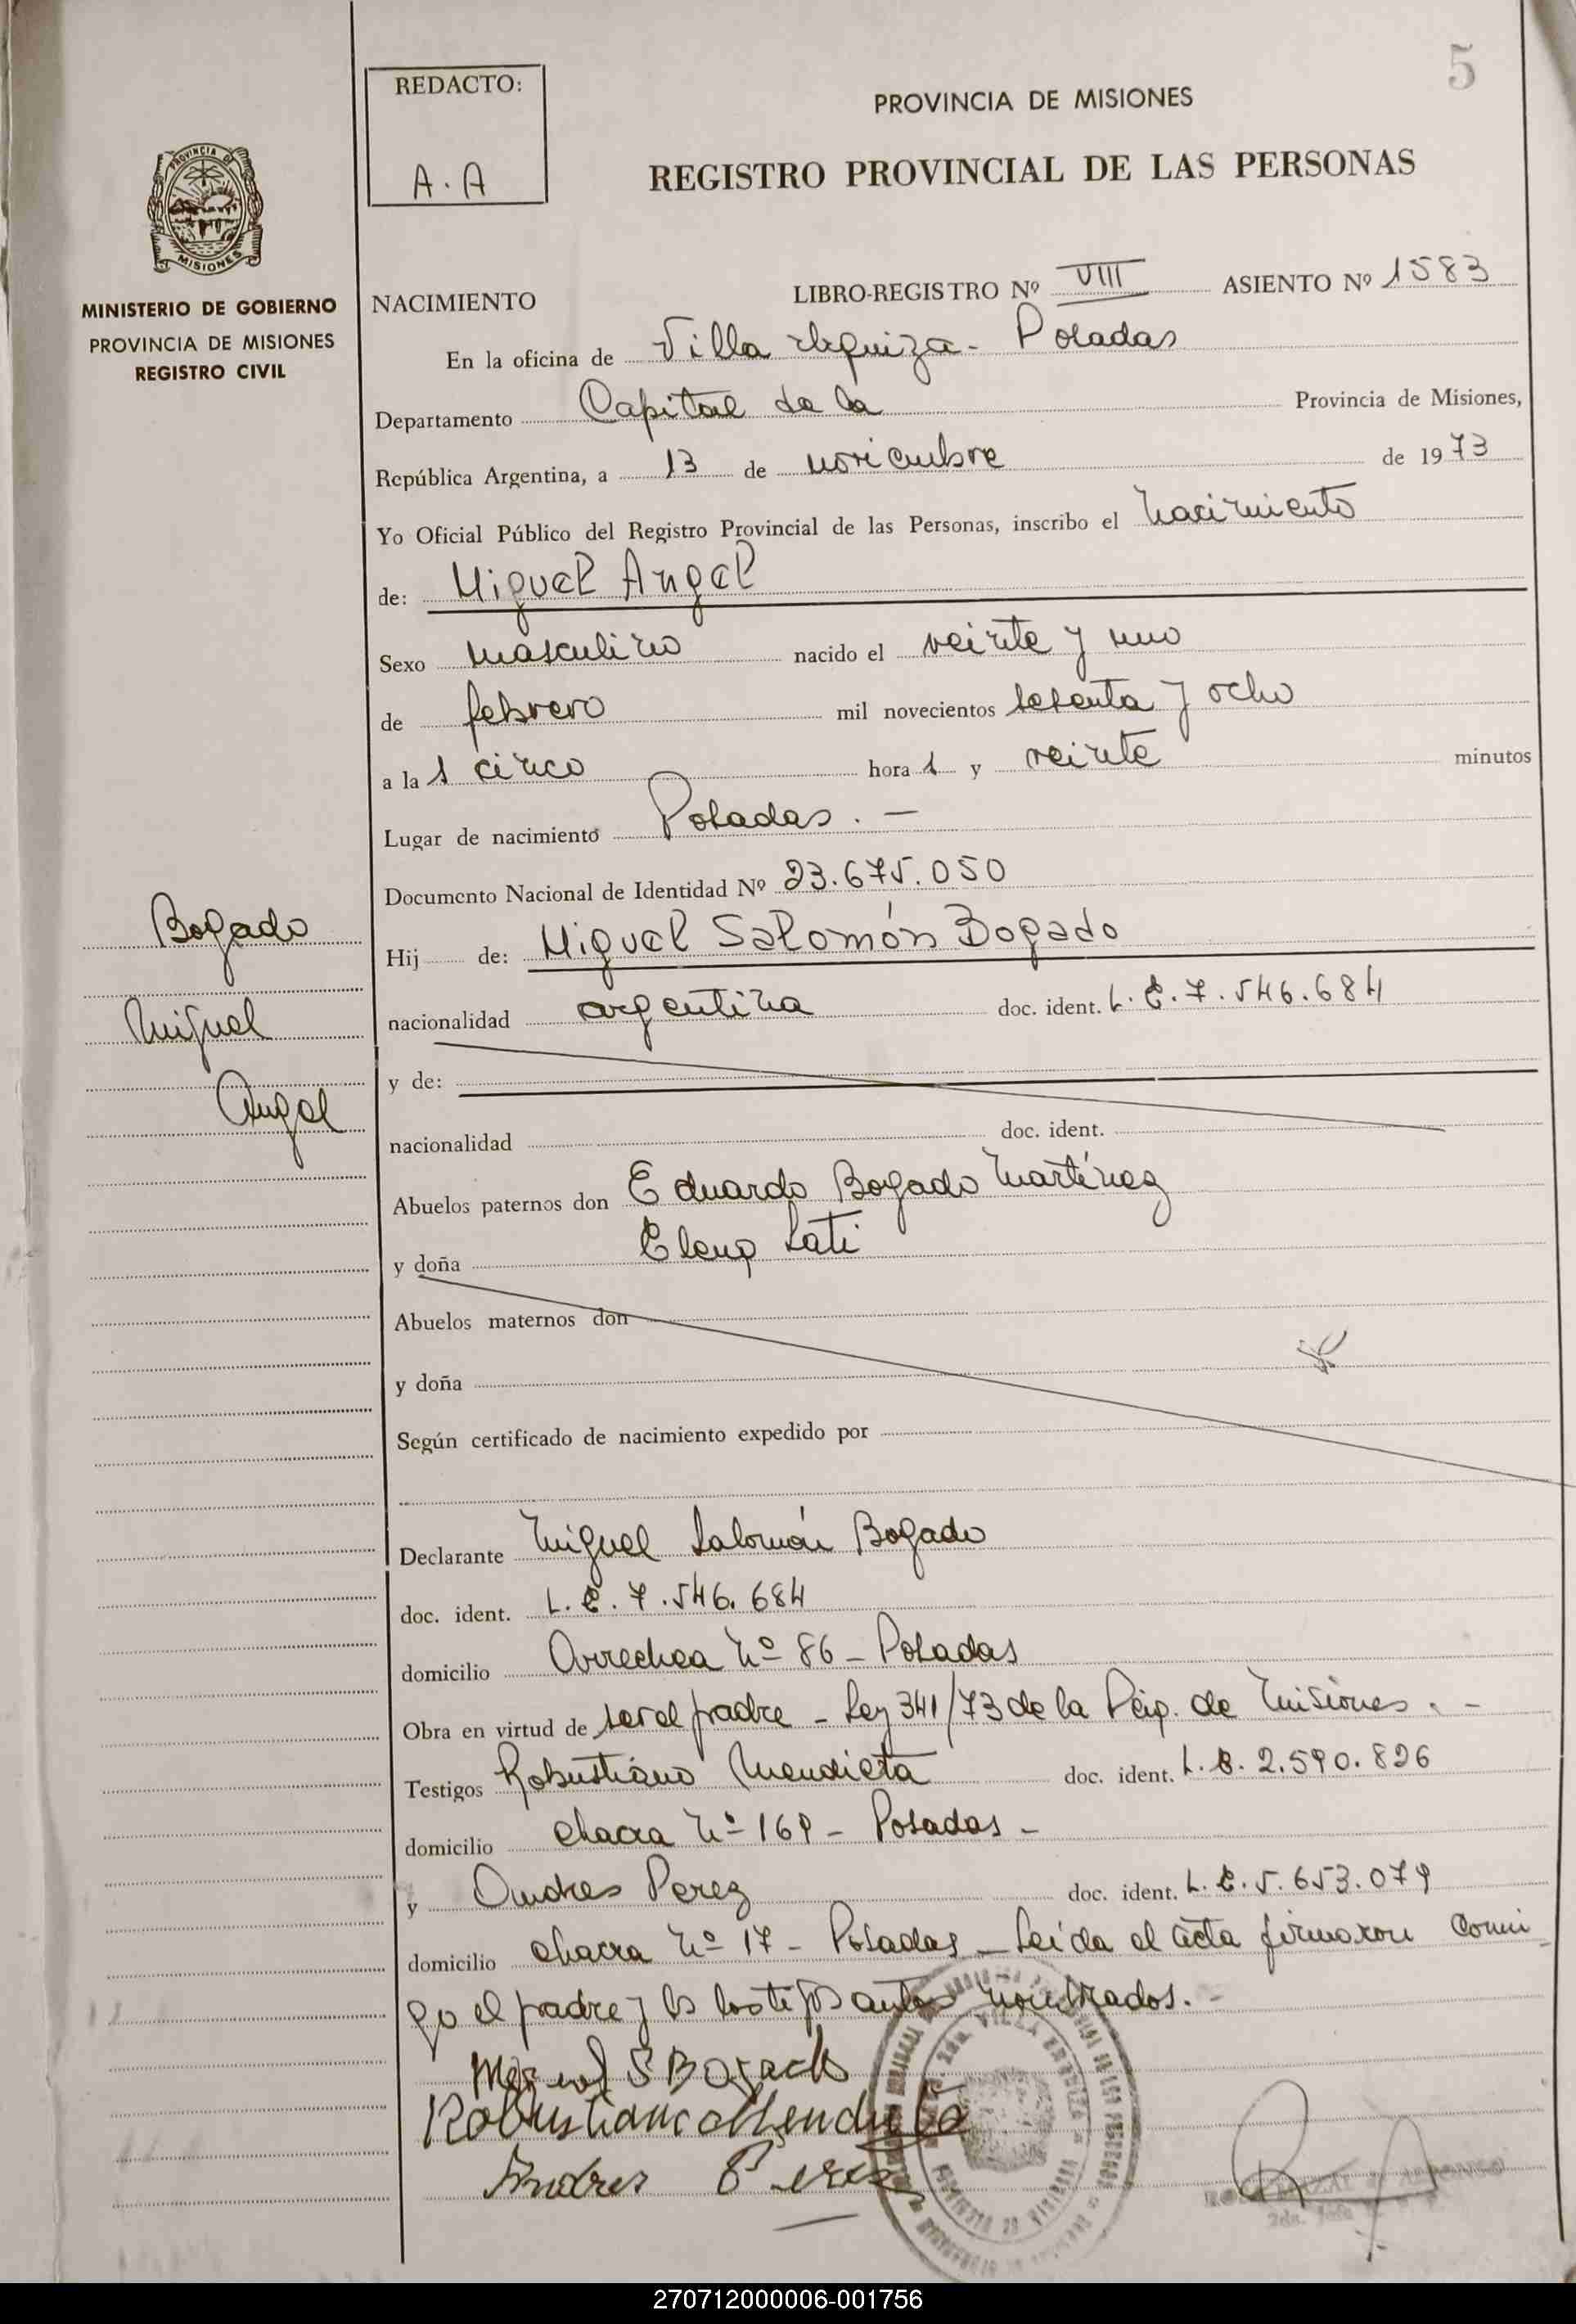 5
REDACTO:
A.A
PROVINCIA DE MISIONES
REGISTRO PROVINCIAL DE LAS PERSONAS
PROVINCIA DE
MISIONES
MINISTERIO DE GOBIERNO
PROVINCIA DE MISIONES
REGISTRO CIVIL
NACIMIENTO LIBRO-REGISTRO Nº VIII ASIENTO Nº 1583
En la oficina de Villa Urquiza - Posadas
Departamento Capital de la Provincia de Misiones,
República Argentina, a 13 de noviembre de 1973
Yo Oficial Público del Registro Provincial de las Personas, inscribo el nacimiento
de: Miguel Angel
Sexo masculino nacido el veinte y uno
de febrero mil novecientos sesenta y ocho
a la s cinco hora s y veinte minutos
Lugar de nacimiento Posadas. -
Documento Nacional de Identidad Nº 23.675.050
Hij de: Miguel Salomón Bogado
nacionalidad argentina doc. ident. L.E.7.546.684
Bogado
Miguel
Angel
y de:
nacionalidad doc. ident.
Abuelos paternos don Eduardo Bogado Martínez
y doña Elena Lati
Abuelos maternos don
y doña
Según certificado de nacimiento expedido por
Declarante Miguel Salomón Bogado
doc. ident. L.E.7.546.684
domicilio Arrechea nº 86 - Posadas
Obra en virtud de ser el padre - Ley 341/73 de la Pcia. de Misiones. -
Testigos Robustiano Mendieta doc. ident. L.E.2.590.826
domicilio chacra nº 169 - Posadas -
y Andres Perez doc. ident. L.E.5.653.079
domicilio chacra nº 17 - Posadas - Leída el acta firmaron conmi
go el padre y los testigos antes nombrados. -
Miguel S Bogado
Robustiano Mendieta
Andres Perez
VILLA URQUIZA
270712000006-001756